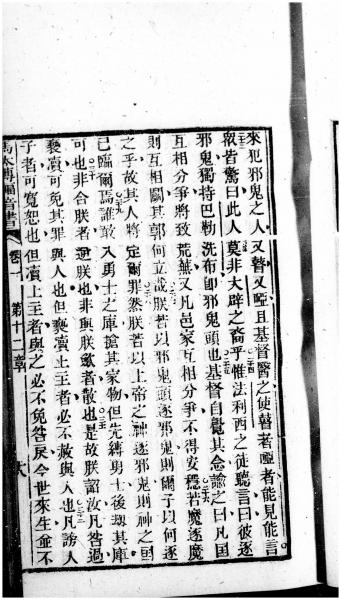 來犯邪鬼之人又瞽又啞且基督醫之使瞽者啞者能見能言
二十三
眾皆驚曰此人莫非大辟之裔乎惟法利西之徒聽言曰彼逐
邪鬼獨持巴勒洗布即邪鬼頭也基督自覺其念諭之曰凡國
互相分爭將致荒蕪又凡邑家互相分爭不得安穩若魔逐魔
則互相鬬其郭何立哉朕若以邪鬼頭逐邪鬼則爾子以何逐
之乎故其人將定爾罪然朕若以上帝之神逐邪鬼則神之國
已臨爾焉誰敢入勇士之庫搶其家物但先縛勇士後刼其庫
可也非合朕者逆朕也非與朕斂者散也是故朕詔汝凡咎過
褻瀆可免其罪與人也但褻瀆上主者必不赦與人也凡謗人
子者可寬恕也但瀆上主者與之必不免咎戾今世來生並不
馬太傳福音書 卷一 第十二章